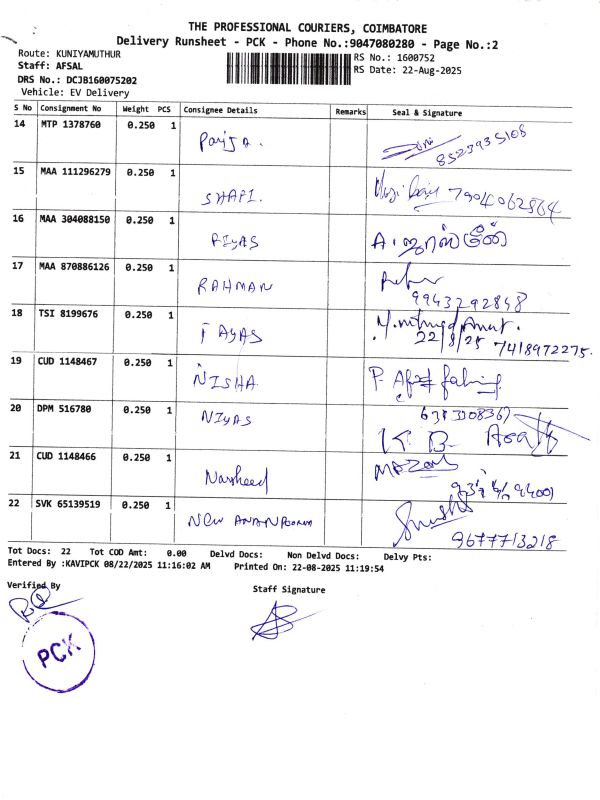 THE PROFESSIONAL COURIERS, COIMBATORE
Delivery Runsheet - PCK - Phone No.:9047080280 - Page No.:2
Route: KUNIYAMUTHUR
RS No.: 1600752
Staff: AFSAL
RS Date: 22-Aug-2025
DRS No.: DCJB160075202
Vehicle: EV Delivery
S No Consignment No Weight PCS Consignee Details Remarks Seal & Signature
14 MTP 1378760 0.250 1
8523935108
15 MAA 111296279 0.250 1 SHAFI. 7904062864
16 MAA 304088150 0.250 1 RIYAS
17 MAA 870886126 0.250 1 RAHMAN
9943292848
18 TSI 8199676 0.250 1 FAYAS
22/8/25 7418972275.
19 CUD 1148467 0.250 1 NISHA
20 DPM 516780 0.250 1 NIYAS
K. B.
21 CUD 1148466 0.250 1 Narsheed
22 SVK 65139519 0.250 1 NEW
9677713218
Tot Docs: 22 Tot COD Amt: 0.00 Delvd Docs: Non Delvd Docs: Delvy Pts:
Entered By :KAVIPCK 08/22/2025 11:16:02 AM Printed On: 22-08-2025 11:19:54
Verified By
Staff Signature
PCK